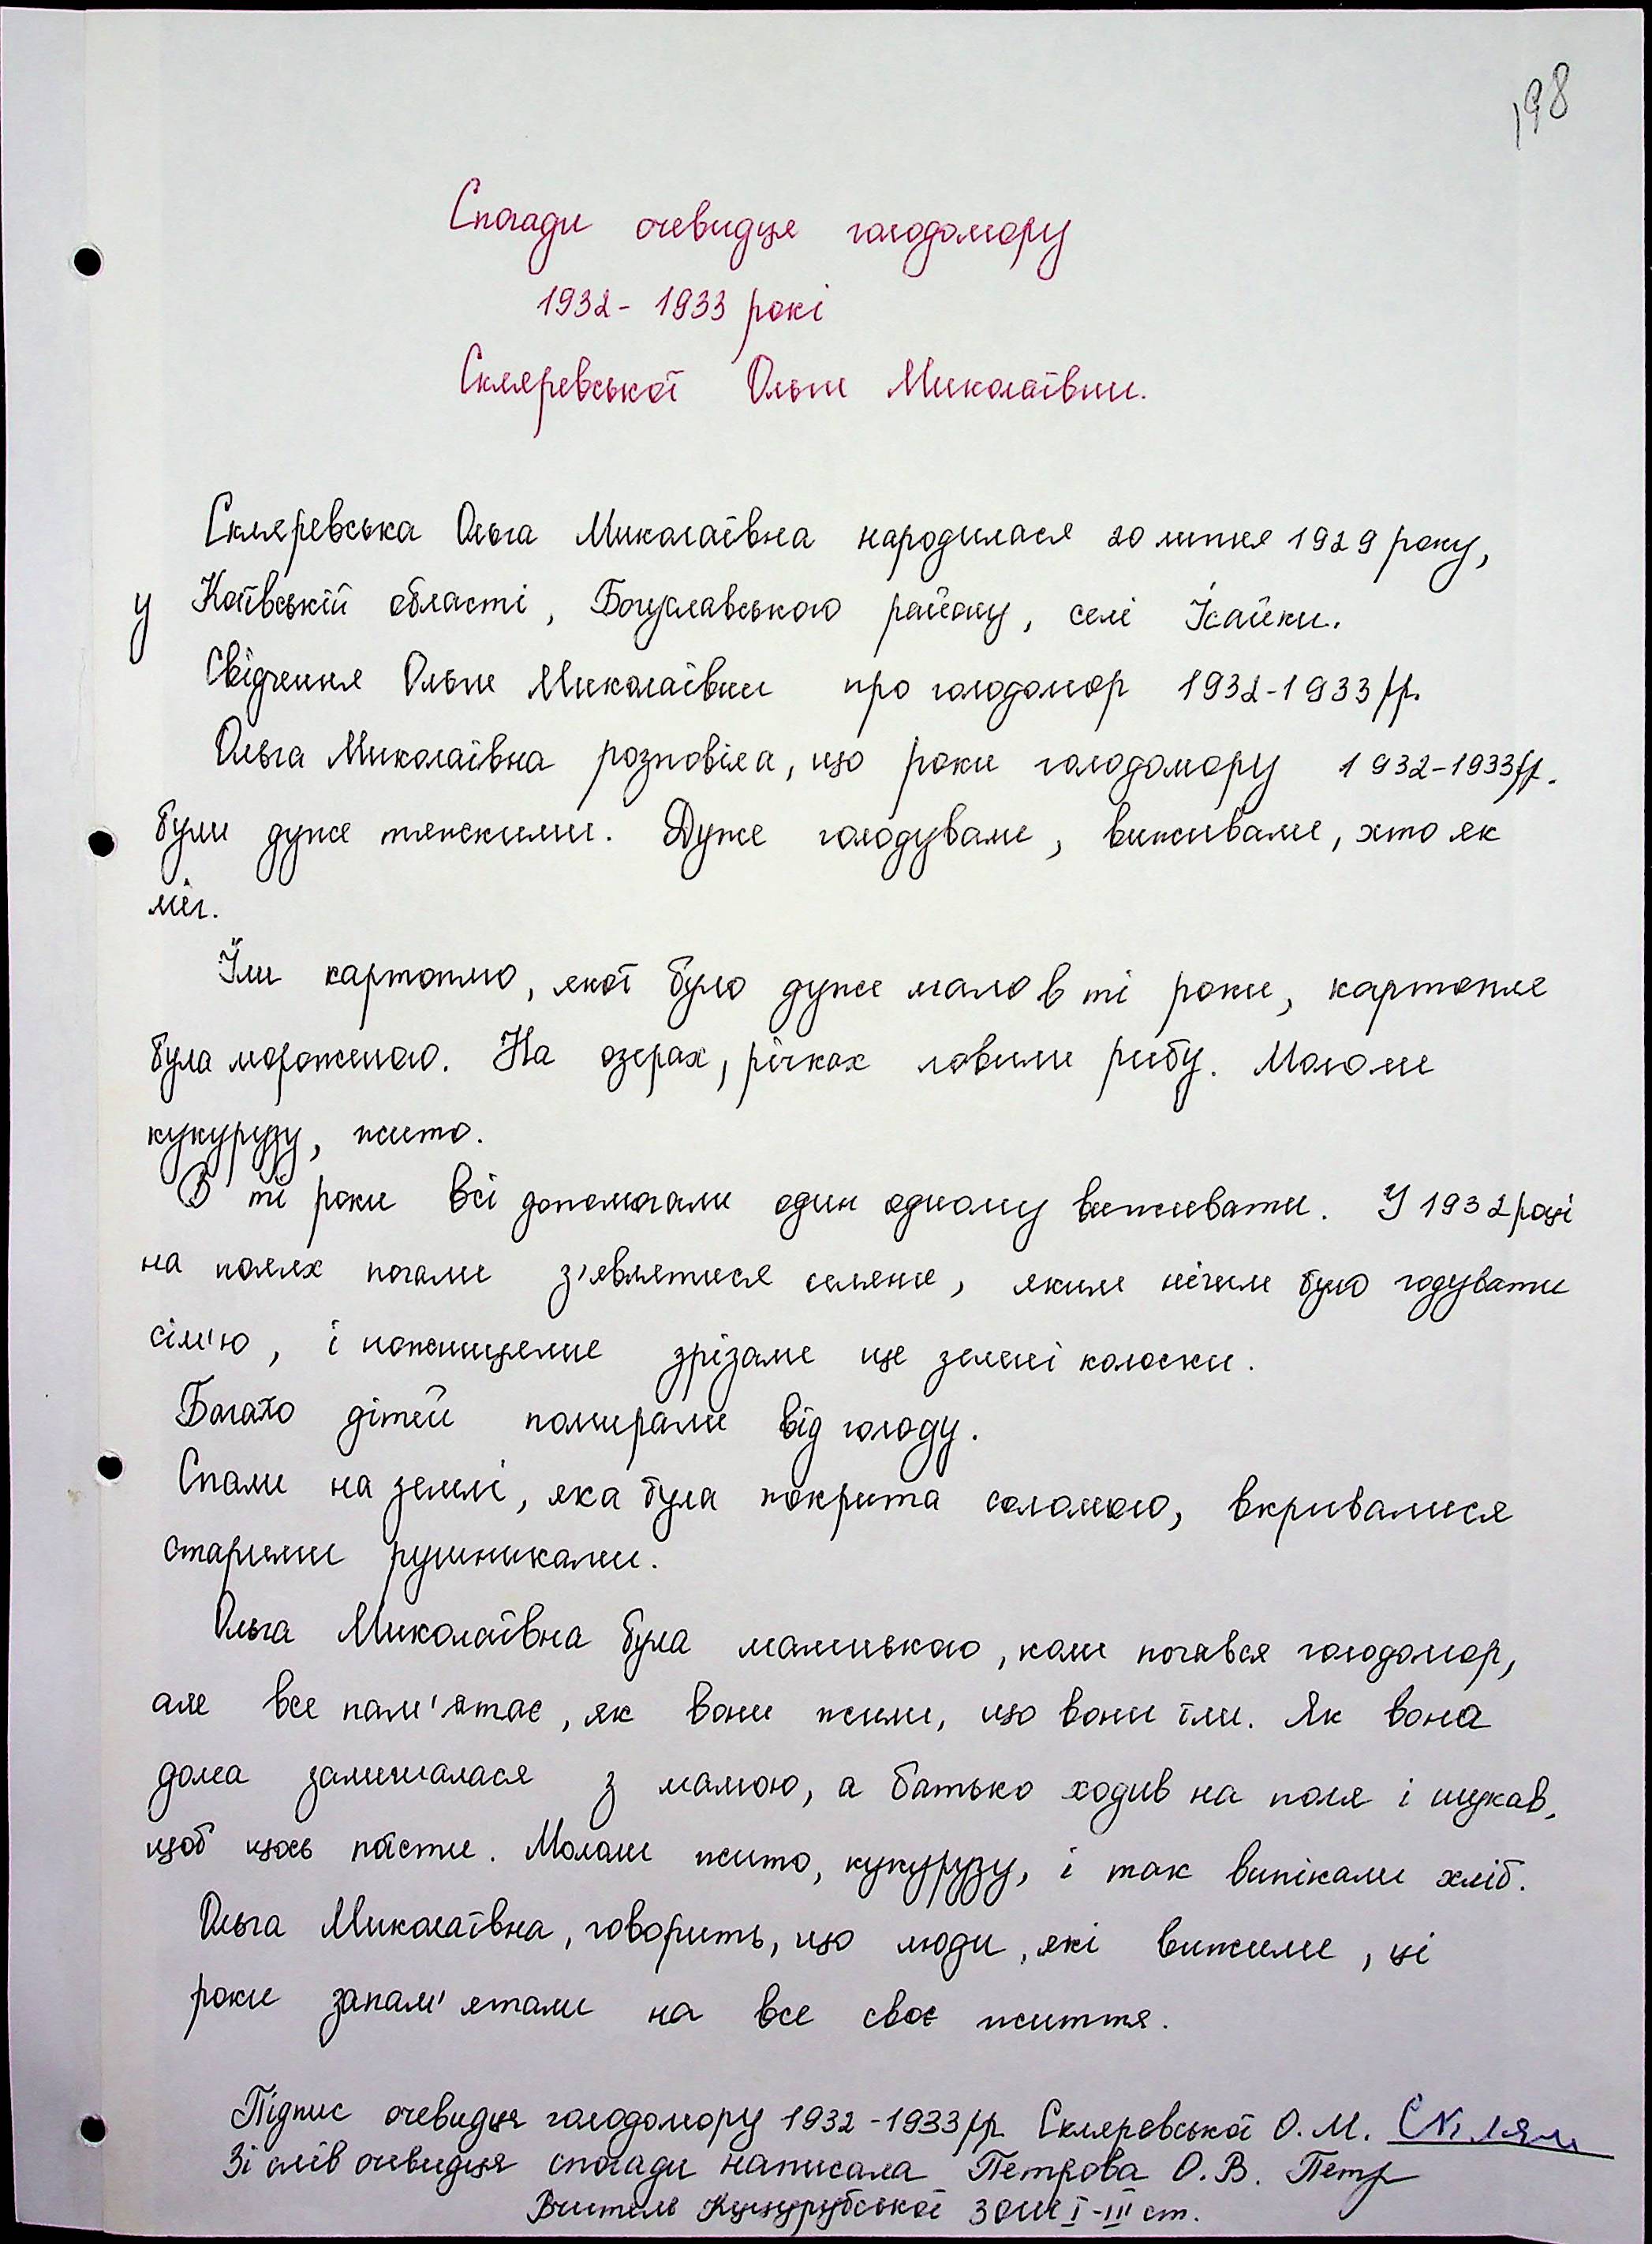 198
Спогади очевидця голодомору
1932-1933 рокі
Скляревської Ольги Миколаївни.
Скляревська Ольга Миколаївна народилася 20 липня 1929 року,
у Київській області, Богуславського району, селі Ісайки.
Свідчення Ольги Миколаївни про голодомор 1932-1933 рр.
Ольга Миколаївна розповіла, що роки голодомору 1932-1933рр.
були дуже тяжкими. Дуже голодували, виживали, хто як
міг.
Їли картоплю, якої було дуже мало в ті роки, картопля
була мороженою. На озерах, річках ловили рибу. Мололи
кукурузу, жито.
В ті роки всі допомагали один одному виживати. У 1932 році
на полях почали з'являтися селяни, яким нічим було годувати
сім'ю, і ножницями зрізали ще зелені колоски.
Багато дітей помирали від голоду.
Спали на землі, яка була покрита соломою, вкривалися
старими рушниками.
Ольга Миколаївна була маленькою, коли почався голодомор,
але все пам'ятає, як вони жили, що вони їли. Як вона
дома залишалася з мамою, а батько ходив на поля і шукав,
щоб щось поїсти. Мололи жито, кукурузу, і так випікали хліб.
Ольга Миколаївна, говорить, що люди, які вижили, ці
роки запам'ятали на все своє життя.
Підпис очевидця голодомору 1932-1933рр. Скляревської О. М.
Зі слів очевидця спогади написала Петрова О. В. Петр
Вчитель Куцурубської ЗОШ I-III ст.